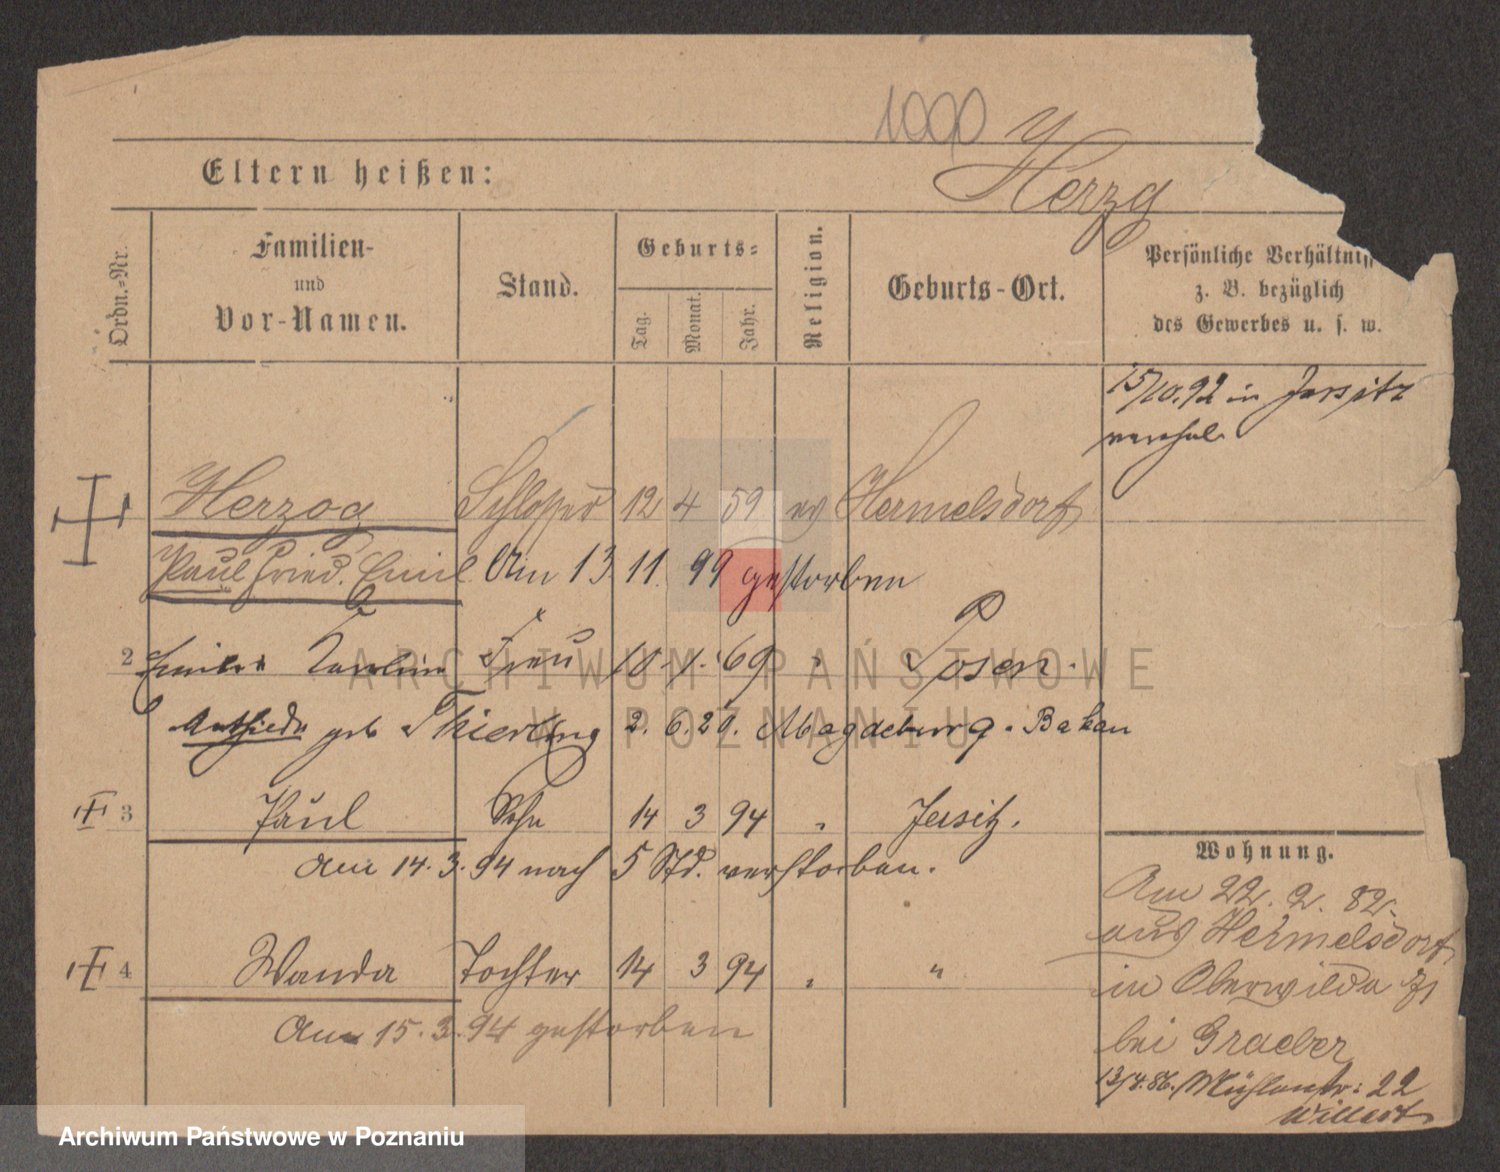 1000
Herzg
Eltern heißen:
Ordn.-Nr.
Familien-
und
Vor-Namen.
Stand.
Geburts-
Tag.
Monat.
Jahr.
Religion.
Geburts-Ort.
Persönliche Verhältniss
z. B. bezüglich
des Gewerbes u. s. w.
15/10.92 in Jersitz
verehel.
Herzog Schlosser 12 4 59 ev Hermelsdorf
Paul Fried. Emil Am 13 11 99 gestorben
2 Emilie Karoline Frau 18 1. 69 " Posen.
geb Thierling 2. 6. 20. Magdeburg - Bukau
3 Paul Sohn 14 3 94 " Jersitz.
am 14. 3. 94 nach 5 Std. verstorben.
4 Wanda Tochter 14 3 94 " "
Am 15. 3. 94 gestorben
Wohnung.
Am 22. 2. 82.
aus Hermelsdorf
in Oberwilda 71
bei Graeber
13/4.86. Mühlenstr: 22
Willert
ARCHIWUM PAŃSTWOWE
W POZNANIU
Archiwum Państwowe w Poznaniu